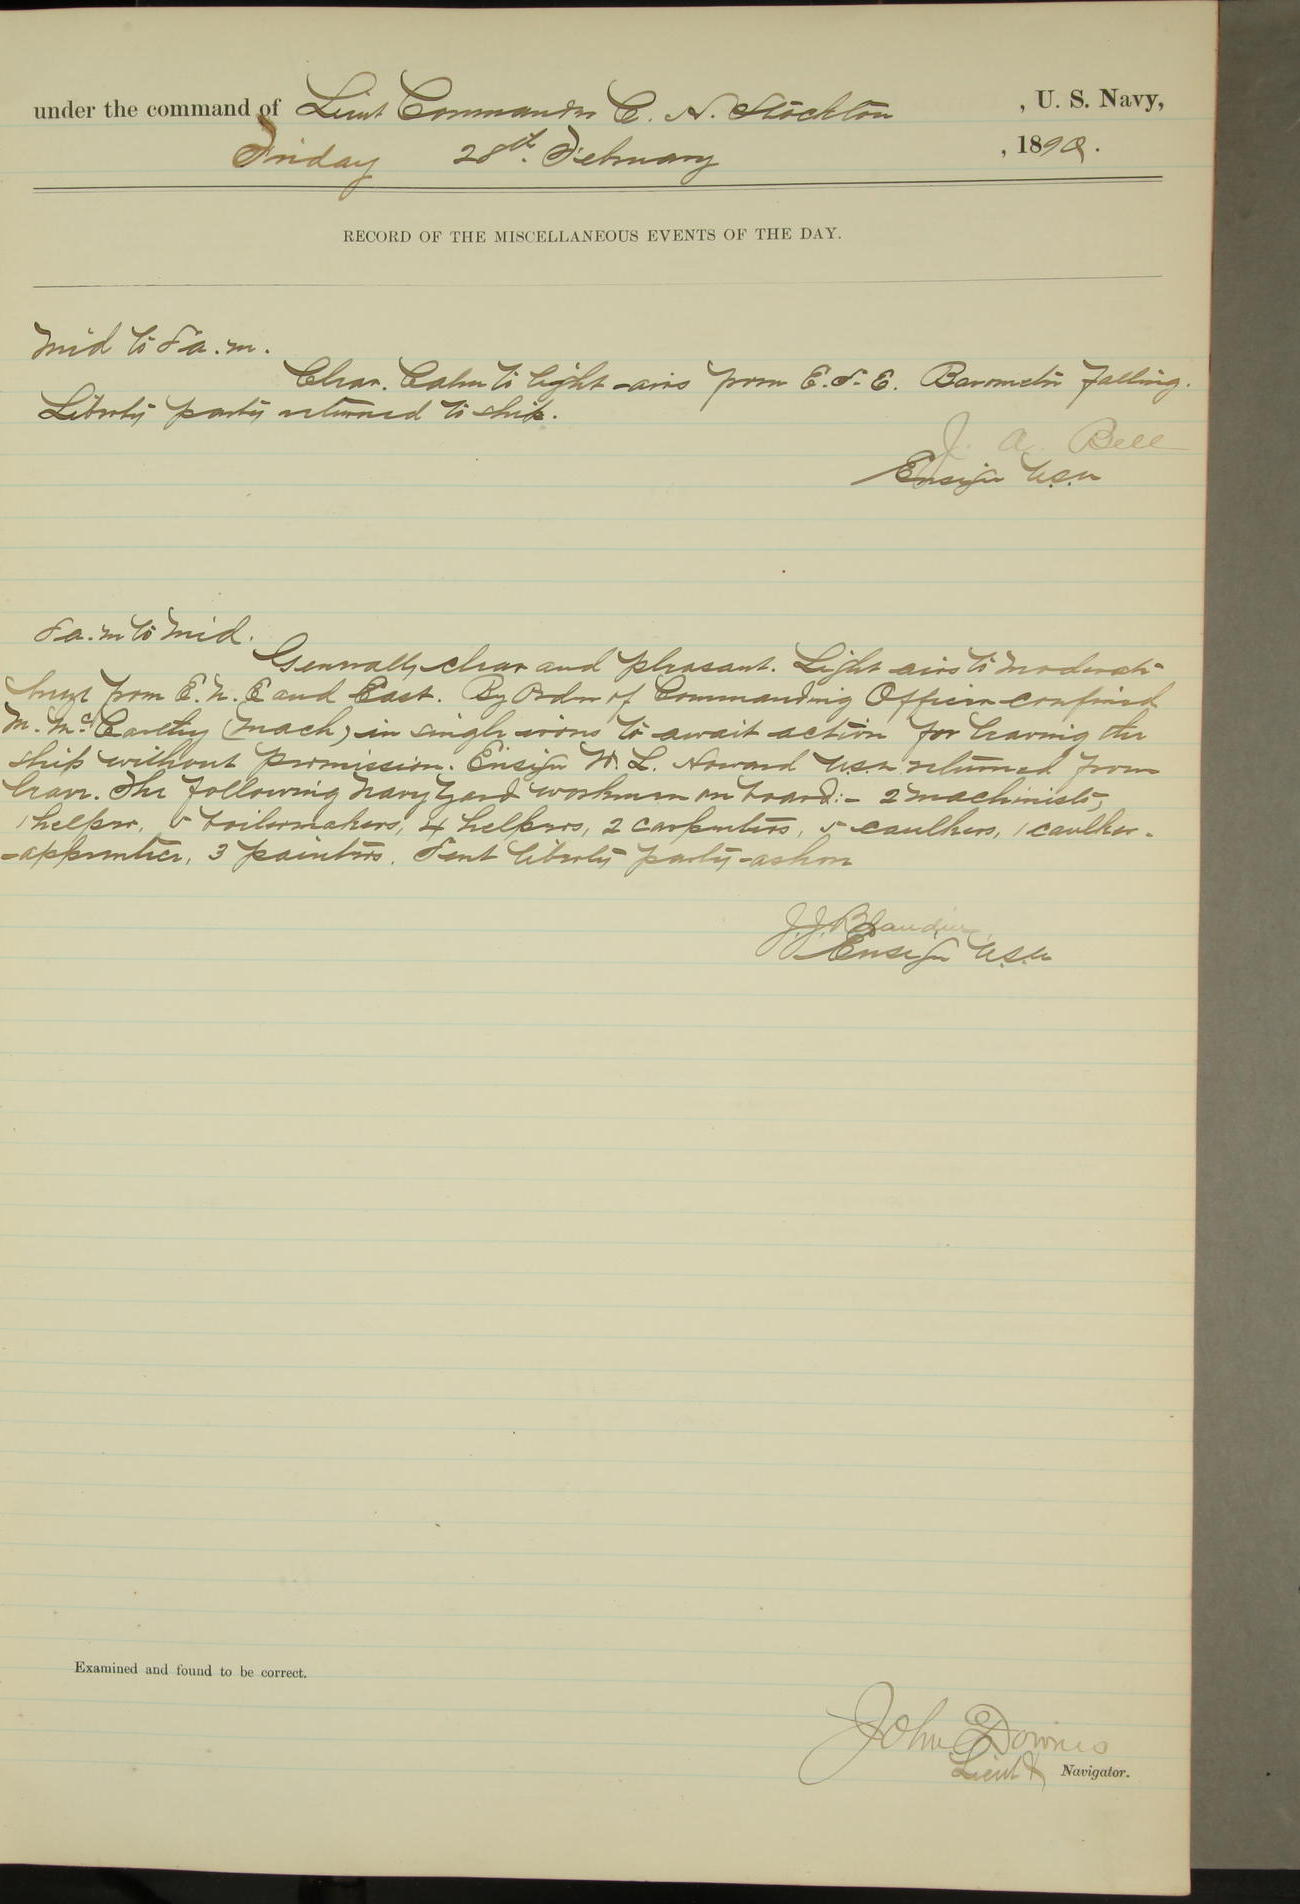 under the command of Lieut Commander C. H. Stockton, U. S. Navy,
Friday 28th. February, 1890.
RECORD OF THE MISCELLANEOUS EVENTS OF THE DAY.
Mid to 8 a.m.
Clear. Calm to light airs from E.S.E. Barometer falling.
Liberty party returned to ship.
J. A. Bell
Ensign U.S.N
8 a.m to Mid.
Generally clear and pleasant. Light airs to moderate
breeze from E.N.E and East. By Order of Commanding Officer confined
M. McCarthy (Mach) in single irons to await action for leaving the
ship without permission. Ensign W. L. Howard U.S.N returned from
leave. The following Navy Yard workmen on board:- 2 machinists,
1 helper, 5 boilermakers, 4 helpers, 2 carpenters, 5 caulkers, 1 caulker-
-apprentice, 3 painters. Sent liberty party ashore
J. J. Blandin
Ensign U.S.N
Examined and found to be correct.
John Downes
Lieut & Navigator.